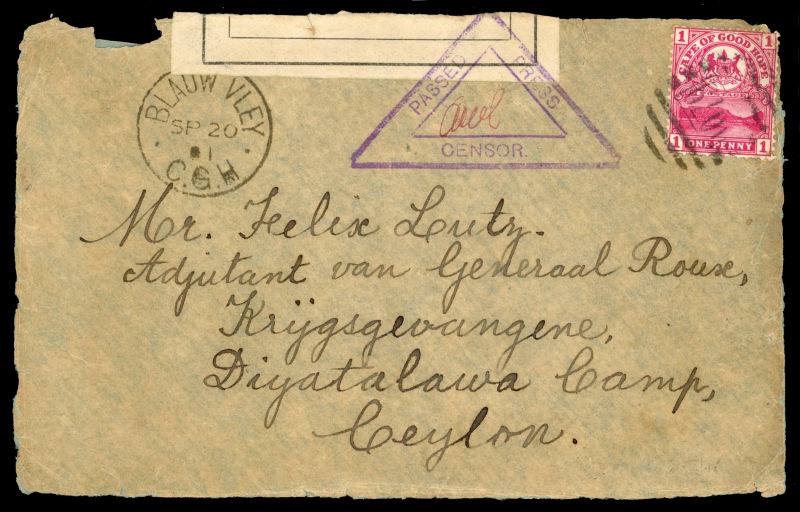 BLAUW VLEY
SP 20
C.G.H
PASSED PRESS
CENSOR.
1 CAPE OF GOOD HOPE 1
POSTAGE
1 ONE PENNY 1
Mr. Felix Lutz.
Adjutant van Generaal Roux,
Krijgsgevangene,
Diyatalawa Camp,
Ceylon.